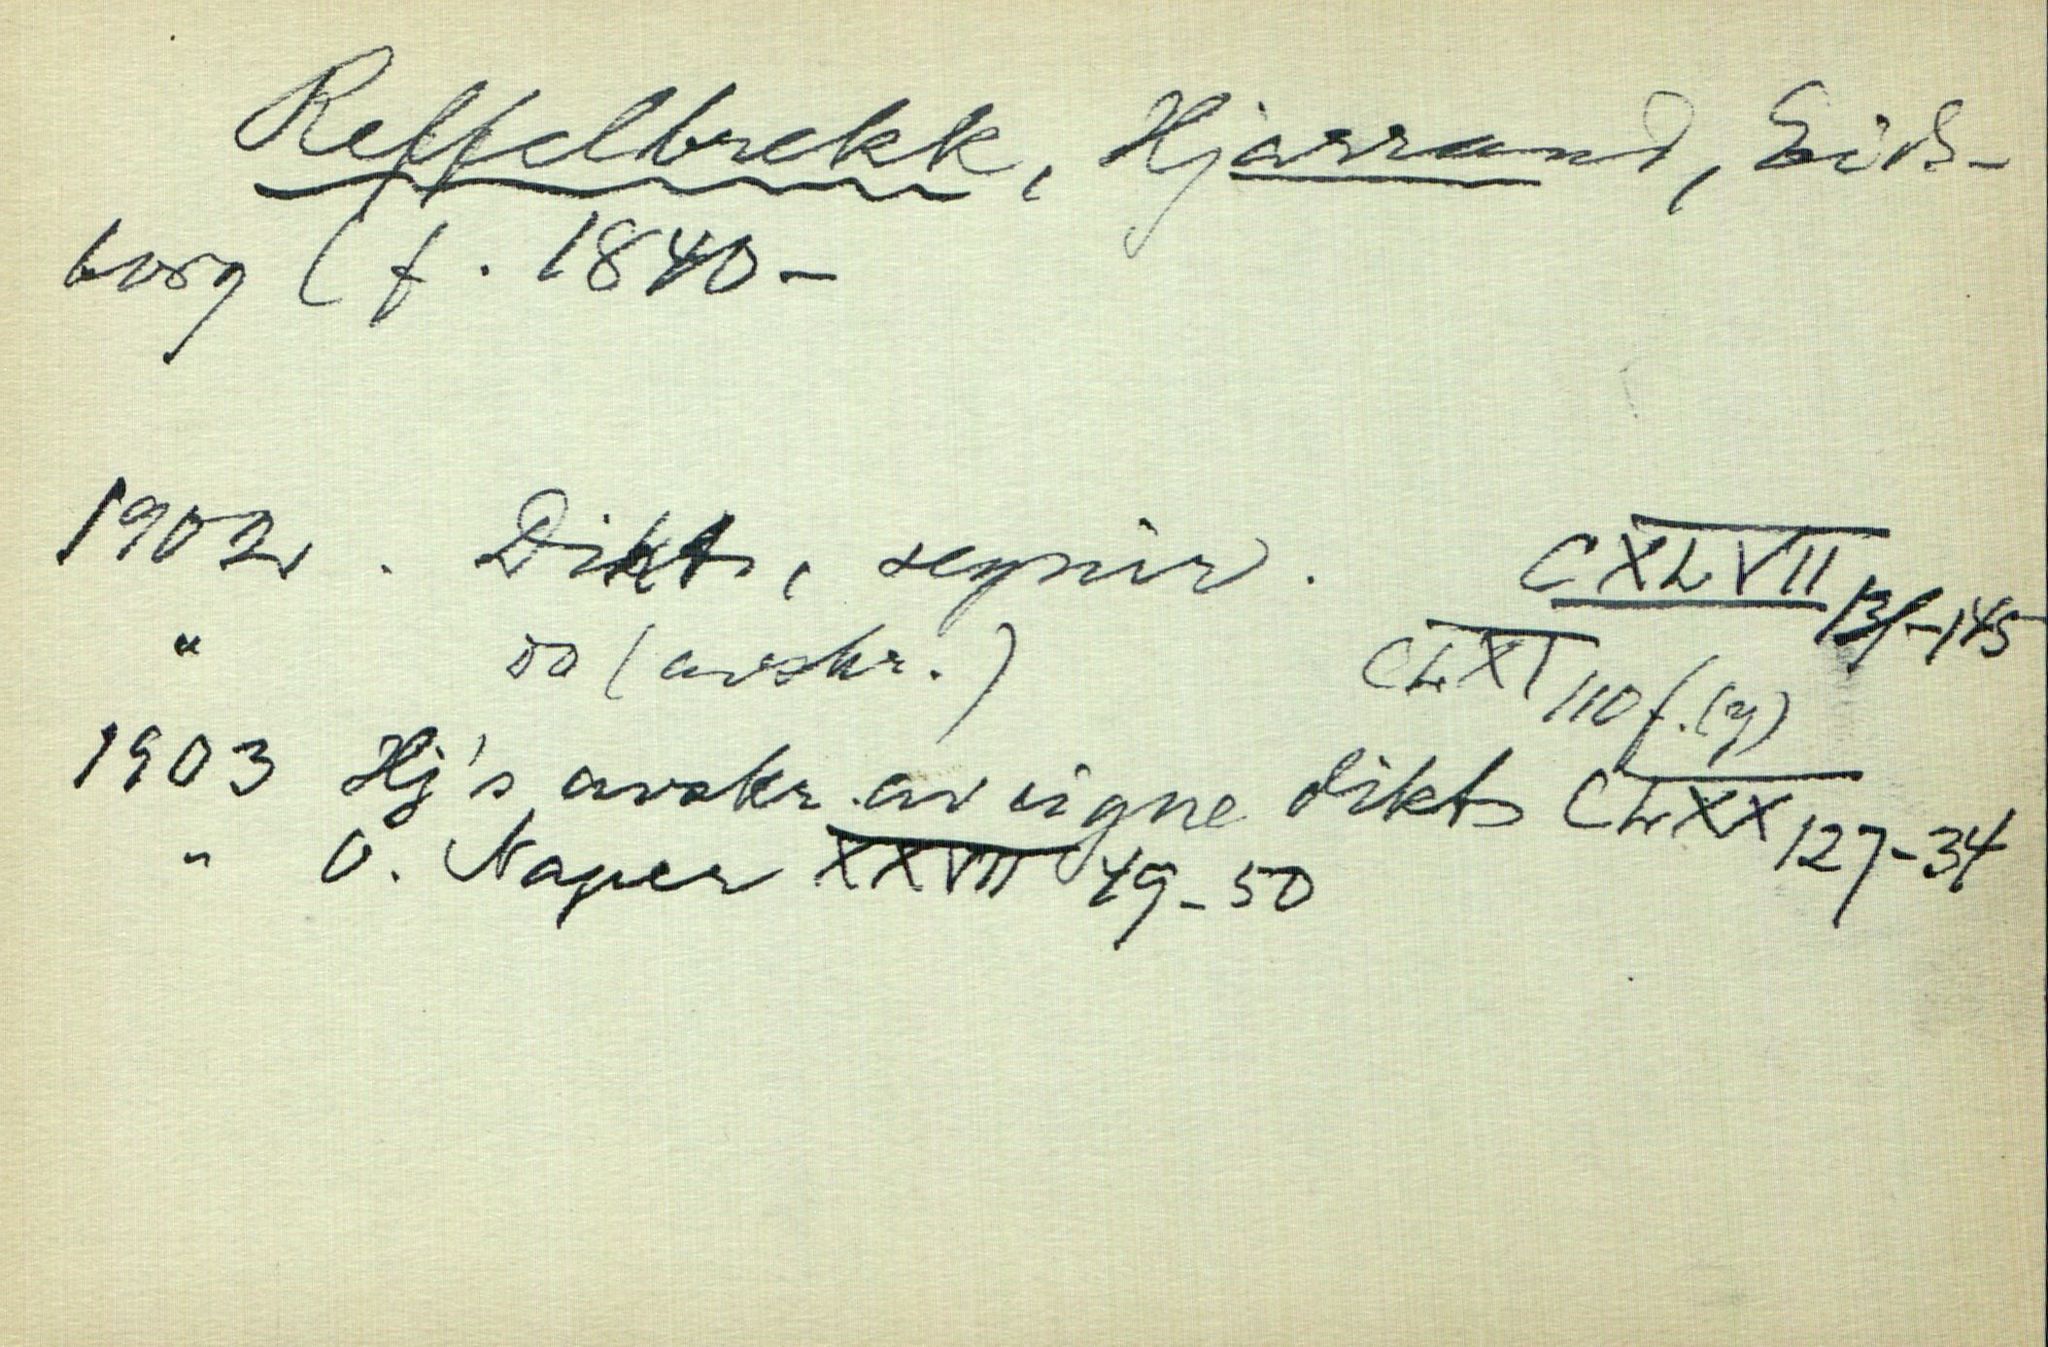 Reffelbrekk, Hjarrand, Eids-
borg (f. 1840-
1902. Dikt, segnir. CXLVII 131-145
" do (avskr.) CLXI 110 f. (y)
1903 Hj's avskr. av eigne dikt CLXX 127-34
" O. Naper XXVII 49-50